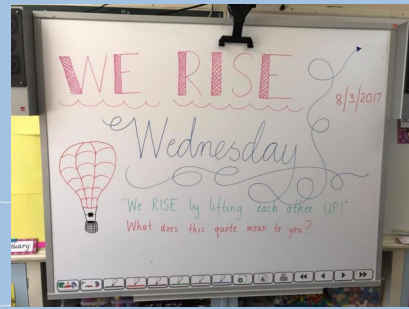 WE RISE
8/3/2017
Wednesday
"We RISE by lifting each other UP!"
What does this quote mean to you?
uary